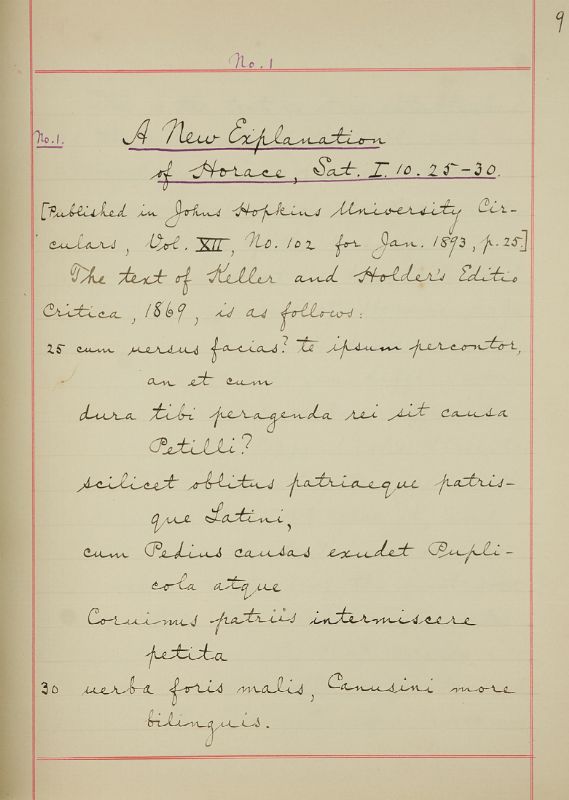 9
No. 1
No. 1.
A New Explanation
of Horace, Sat. I. 10. 25-30.
[Published in Johns Hopkins University Cir-
culars, Vol. XII, No. 102 for Jan. 1893, p. 25.]
The text of Keller and Holder's Editio
Critica, 1869, is as follows:
25 cum uersus facias? te ipsum percontor,
an et cum
dura tibi peragenda rei sit causa
Petilli?
scilicet oblitus patriaeque patris-
que Latini,
cum Pedius causas exudet Pupli-
cola atque
Coruinus patriis intermiscere
petita
30 uerba foris malis, Canusini more
bilinguis.